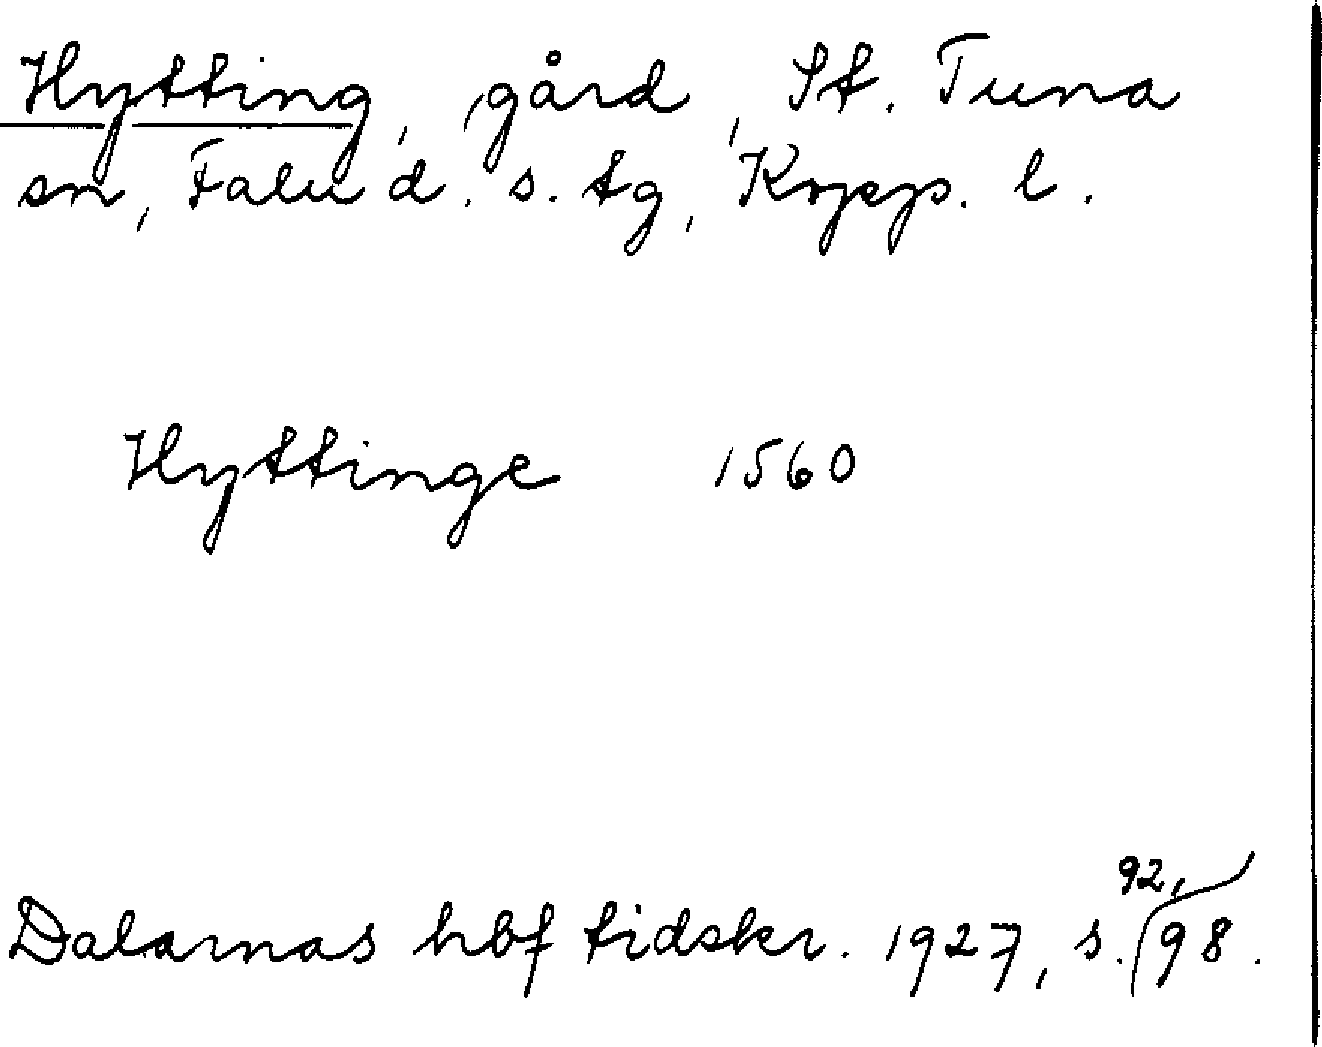 Hytting, gård, St. Tuna
sn, Falu d. s. tg, Kopp. l.
Hyttinge 1560
92,
Dalarnas hbf tidskr. 1927, s. 98.